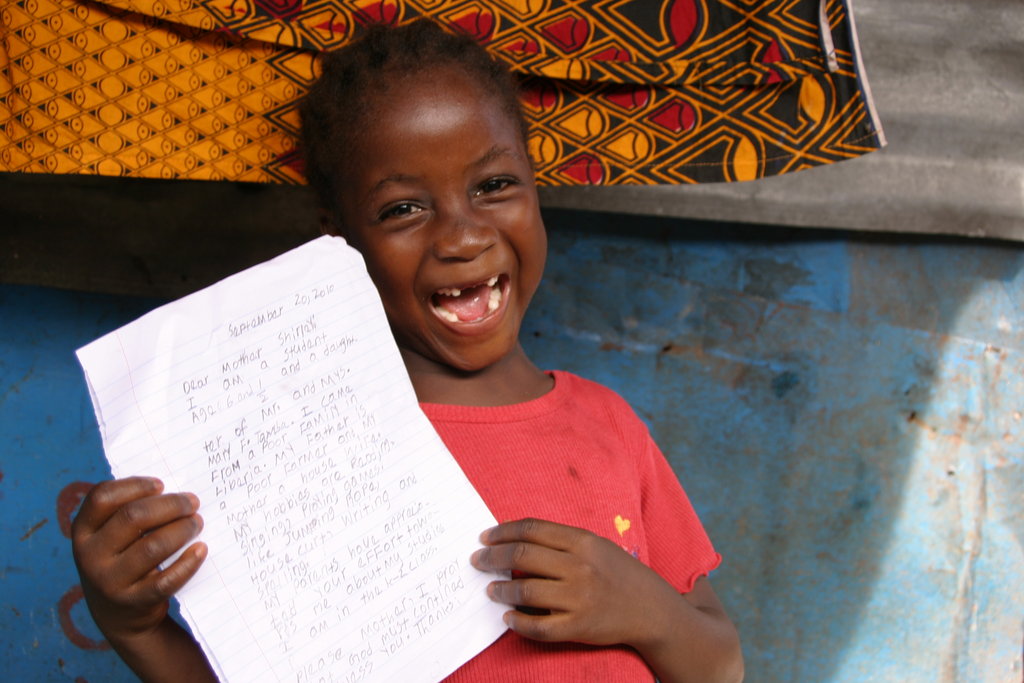 September 20, 2010
Dear Mother Shirley
I am a student
Age: 6 and 1/2 and a daugh-
ter of Mr. and Mrs.
Mary F. Tamba. I came
From a Poor Family in
Liberia. My Father is
a Poor Farmer and My
Mother a house wife.
My hobbies are Reading
Singing, Playing games,
like Jumping Rope,
House curt, writing and
spelling.
My Parents have apprecia-
ted your effort tow-
rds me about My studies
I am in the K-2 class.
Please Mother, I Pray
that God must continue
bless you! Thanks.